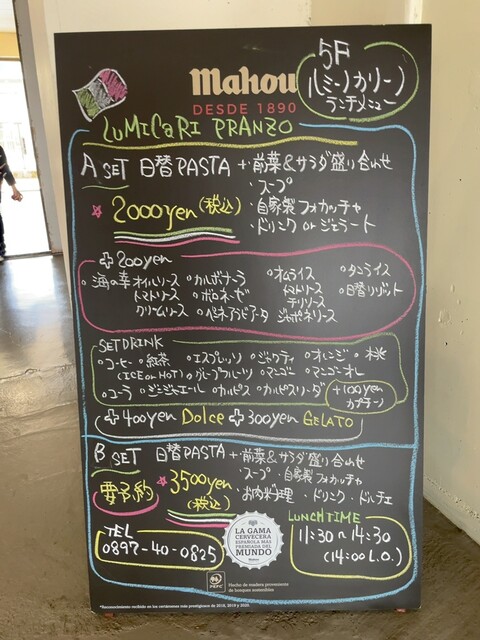 5F
ルミーノカリーノ
ランチメニュー
mahou
DESDE 1890
LuMiCaRi PRANZO
A SET 日替PASTA + 前菜&サラダ盛り合わせ
・スープ
2000yen (税込) ・自家製フォカッチャ
・ドリンク or ジェラート
+200yen
○海の幸オイルソース ○カルボナーラ ○オムライス ○タンライス
トマトソース ○ボロネーゼ トマトソース ○日替リゾット
クリームソース ○ペンネアラビアータ デミソース
ジャポネソース
SET DRINK
○コーヒー・紅茶 ○エスプレッソ ○ジャクティ ○オレンジ ○桃
(ICE or HOT) ○グレープフルーツ ○マンゴー ○マンゴーオレ
○コーラ ○ジンジャエール ○カルピス ○カルピスソーダ
+100yen
カプチーノ
+400yen Dolce +300yen GELATO
B SET 日替PASTA + 前菜&サラダ盛り合わせ
・スープ ・自家製フォカッチャ
要予約 3500yen ・お肉料理 ・ドリンク・ドルチェ
(税込)
TEL
0897-40-0825
LUNCH TIME
11:30~14:30
(14:00 L.O.)
LA GAMA
CERVECERA
ESPAÑOLA MÁS
PREMIADA DEL
MUNDO
Mahou
PEFC
Hecho de madera proveniente
de bosques sostenibles
*Reconocimiento recibido en los certámenes más prestigiosos de 2018, 2019 y 2020.